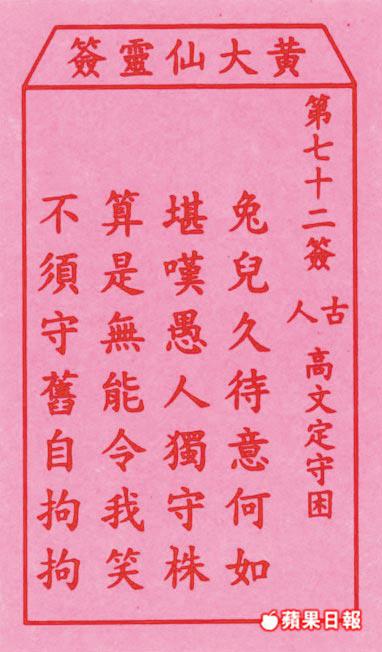 黄大仙靈簽
第七十二簽
古人 高文定守困
兔兒久待意何如
堪嘆愚人獨守株
算是無能令我笑
不須守舊自拘拘
蘋果日報